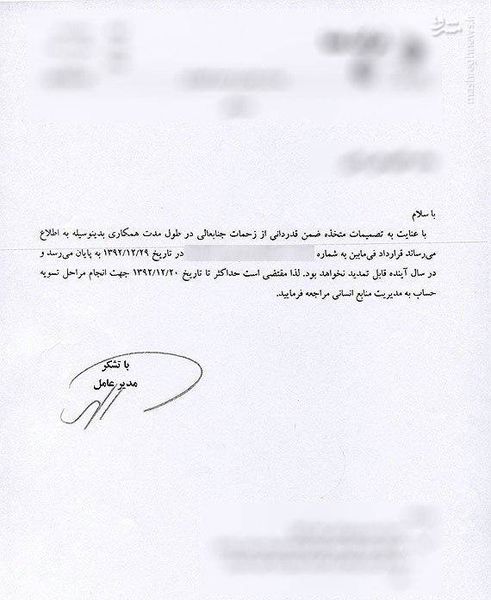 مشرق
mashreghnews.ir
با سلام
با عنایت به تصمیمات متخذه ضمن قدردانی از زحمات جنابعالی در طول مدت همکاری بدینوسیله به اطلاع
می‌رساند قرارداد فی‌مابین به شماره در تاریخ ۱۳۹۲/۱۲/۲۹ به پایان می‌رسد و
در سال آینده قابل تمدید نخواهد بود. لذا مقتضی است حداکثر تا تاریخ ۱۳۹۲/۱۲/۲۰ جهت انجام مراحل تسویه
حساب به مدیریت منابع انسانی مراجعه فرمایید.
با تشکر
مدیر عامل